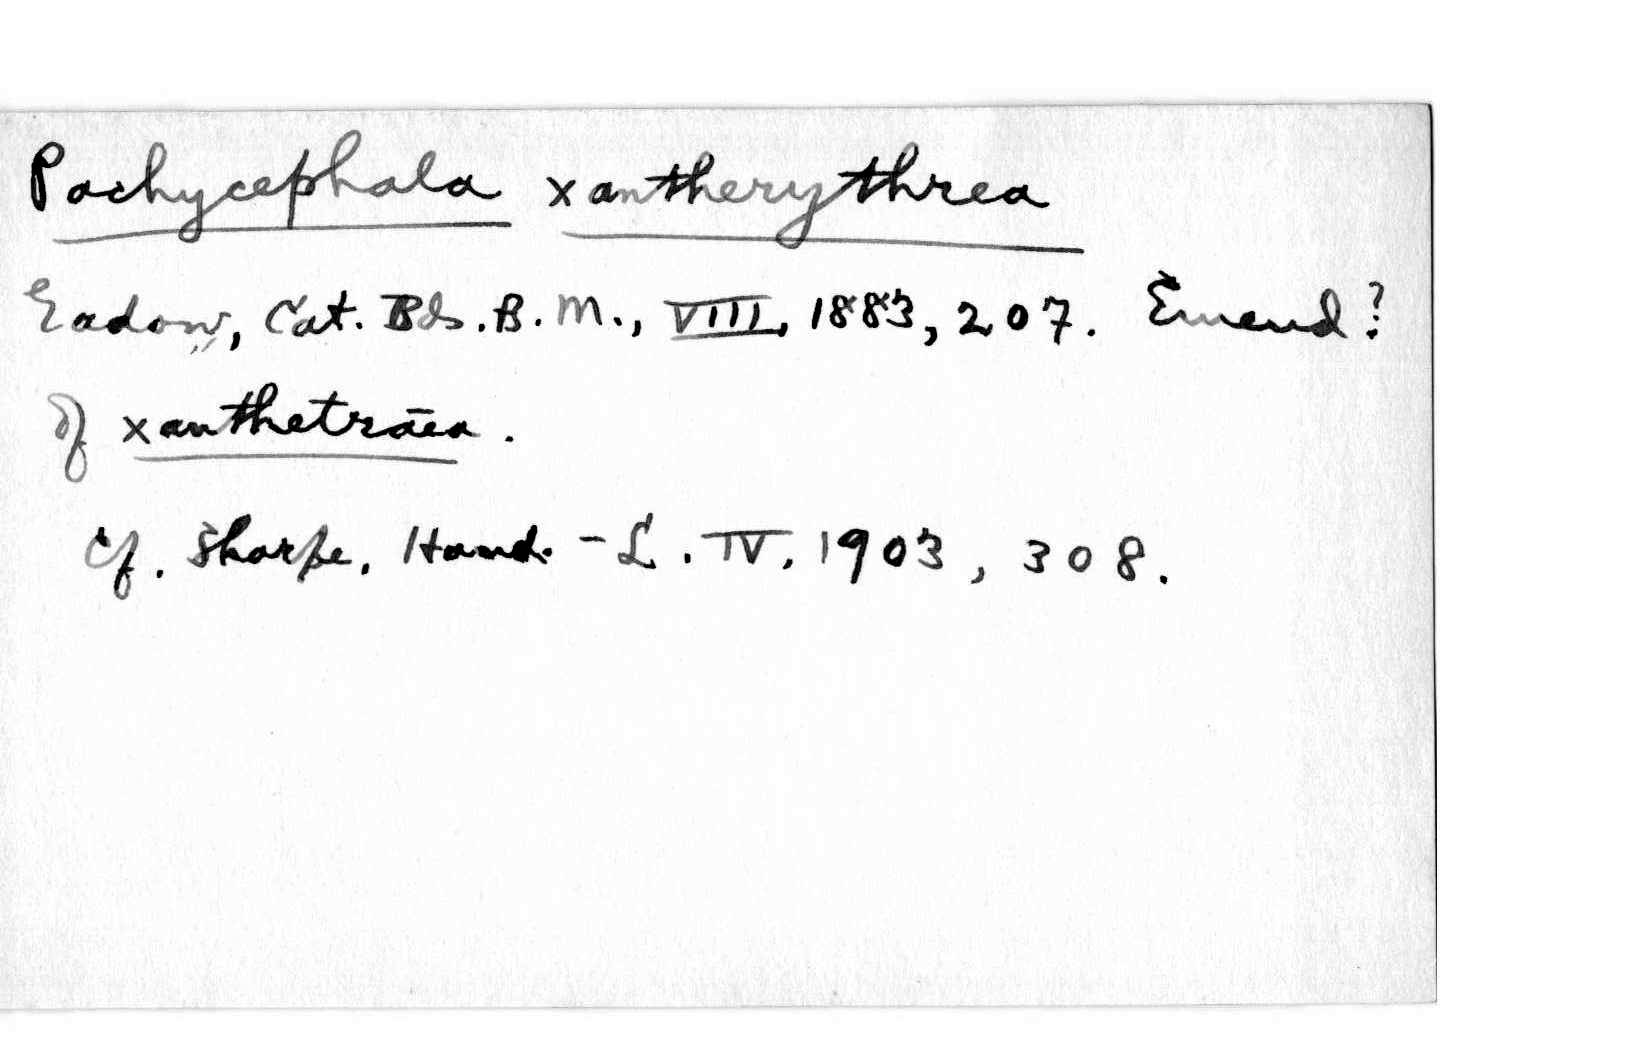 Pachycephala xantherythrea
Gadow, Cat. Bds. B. M., VIII, 1883, 207. Emend?
of xanthetraea.
Cf. Sharpe, Hand-L. IV, 1903, 308.